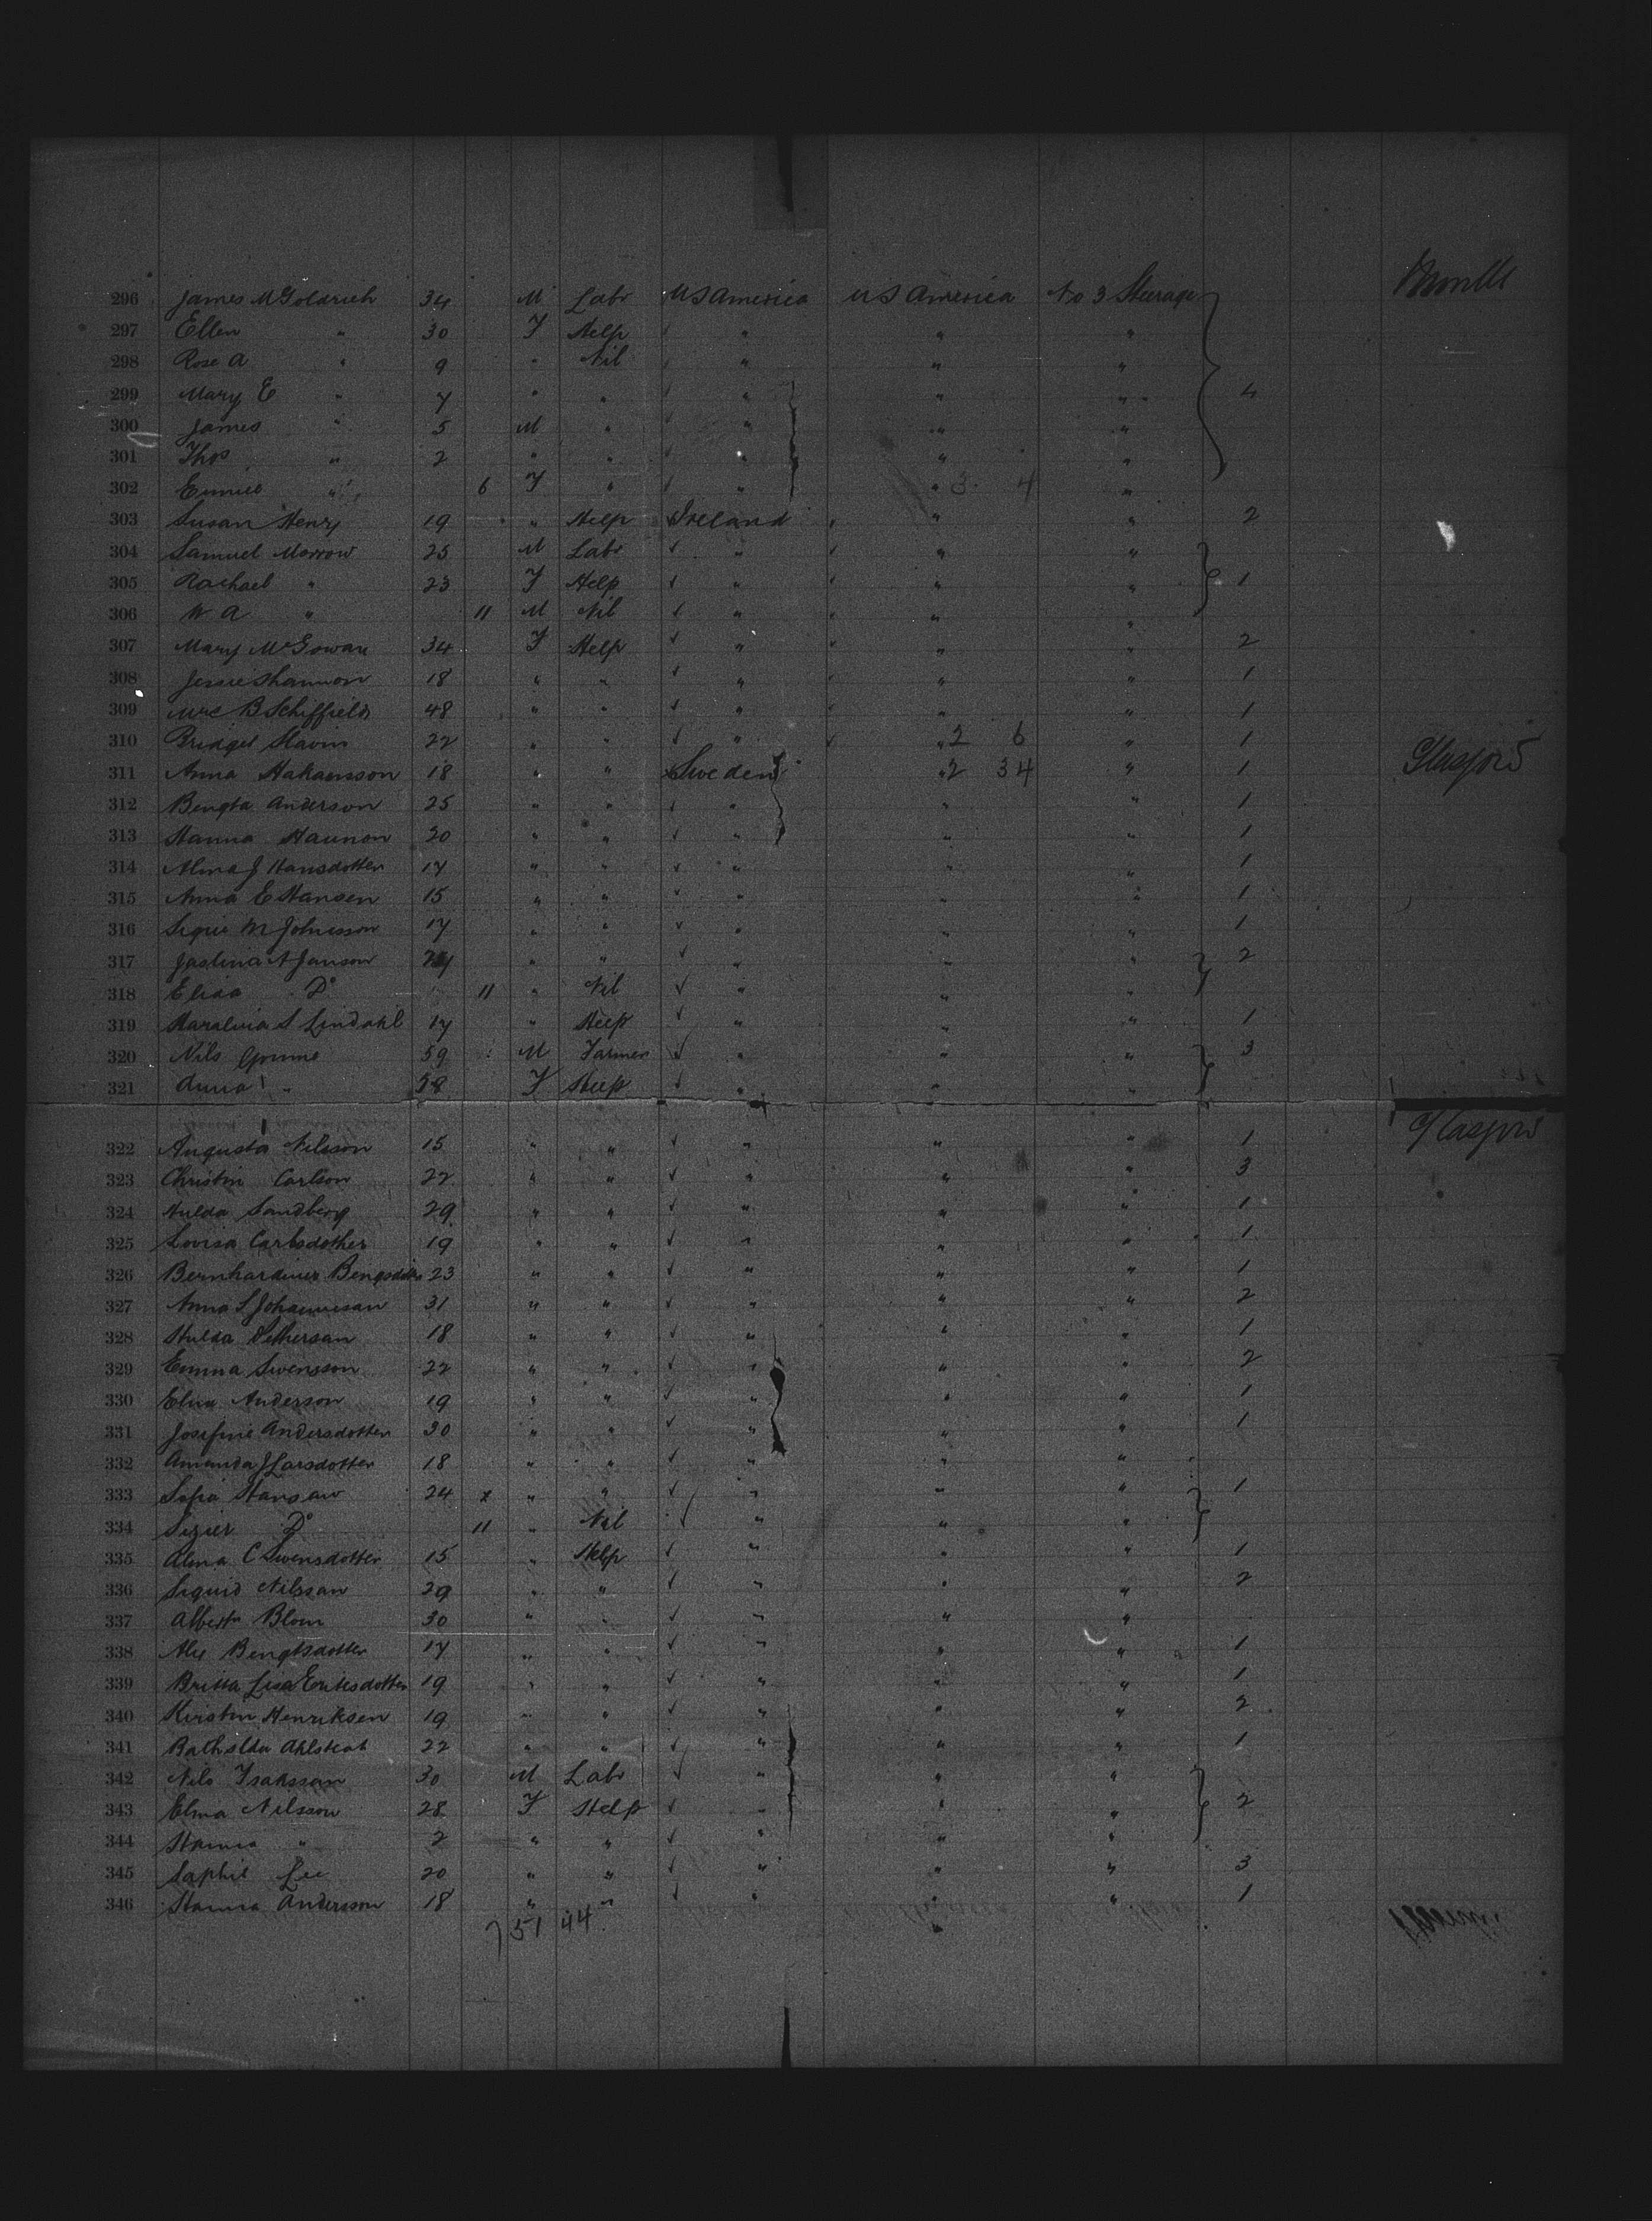 296 James McGoldrich 34 M Labr US America US America No 3 Steerage
297 Ellen " 30 F Help " " "
298 Rose A " 9 " Nil " " "
299 Mary E " 7 " " " " " 4
300 James " 5 M " " " "
301 Thos " 2 " " " " "
302 " 6 F " " " 3 4 "
303 Susan Henry 19 " Help Ireland " " 2
304 Samuel Morrow 25 M Labr " " "
305 Rachael " 23 F Help " " " 1
306 W A " 11 M Nil " " "
307 Mary McGowan 34 F Help " " " 2
308 Jessie Shannon 18 " " " " " 1
309 Mrs B Schiffields 48 " " " " " 1
310 Bridget Slavin 22 " " " " 2 6 " 1
311 Anna Hakansson 18 " " Sweden " 2 34 " 1 Glasgow
312 Bengta Anderson 25 " " " " " 1
313 Hanna " " " " " 1
314 Alma J Hansdotter 17 " " " " " 1
315 Anna E Hansen 15 " " " " " 1
316 M Johnsson 17 " " " " " 1
317 Janson " " " " " 2
318 Elisa Do 11 " Nil " " "
319 S Lindahl 17 " Help " " " 1
320 Nils 59 M Farmer " " " 3
321 Anna " 58 F Help " " "
322 Augusta Nilsson 15 " " " " " 1 Glasgow
323 Christin Carlson 22 " " " " " 3
324 Hulda Sandberg 29 " " " " " 1
325 Lovisa Carlsdother 19 " " " " " 1
326 23 " " " " " 1
327 Anna S 31 " " " " " 2
328 Hulda 18 " " " " " 1
329 Emma Swensson 22 " " " " " 2
330 Elin Anderson 19 " " " " " 1
331 Josefine Andersdotter 30 " " " " " 1
332 Amanda J Larsdotter 18 " " " " "
333 Sofia 24 x " " " " " 1
334 Do 11 " Nil " " "
335 Alma C Swensdotter 15 " Help " " " 1
336 Nilssan 29 " " " " " 2
337 Blom 30 " " " " "
338 Bengtsdotter 17 " " " " " 1
339 Britta Lisa Eriksdotter 19 " " " " " 1
340 Kirstin Henriksen 19 " " " " " 2
341 22 " " " " " 1
342 Nils Isaksson 30 M Labr " " "
343 Elma Nilsson 28 F Help " " " 2
344 Hanna " 2 " " " " "
345 Lee 20 " " " " " 3
346 Hanna Andersson 18 " " " " " 1
7 51 44 "